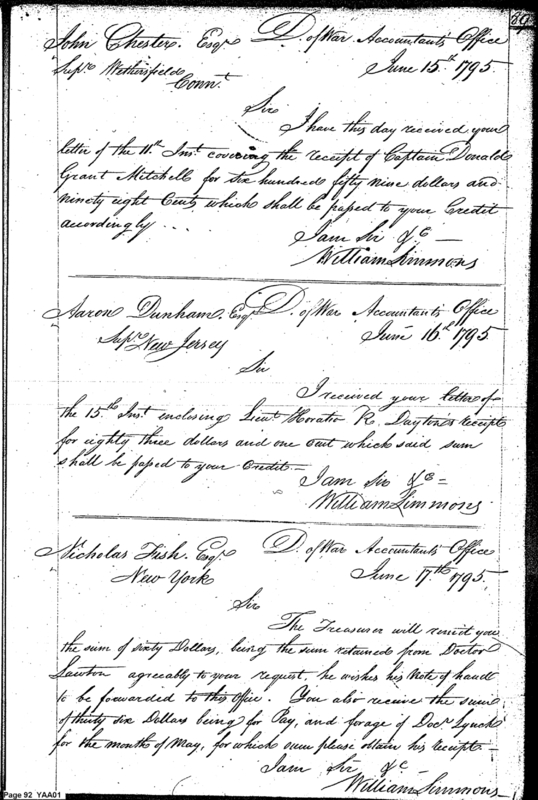 John Chester Esqr D. of War Accountants Office
Supr. Wethersfield June 15th 1795.
Connt.
Sir
I have this day received your
letter of the 11th Inst covering the receipt of Captain Donald
Grant Mitchell for six hundred fifty nine dollars and
ninety eight Cents, which shall be passed to your Credit
accordingly...
I am Sir &c —
William Simmons
Aaron Dunham, Esqr D. of War Accountants Office
Supr New Jersey June 16th 1795.
Sir
I received your letter of
the 15th Inst enclosing Lieut Horatio R. Dayton's receipt
for eighty three dollars and one Cent which said sum
shall be passed to your Credit. —
I am Sir &c =
William Simmons
Nicholas Fish. Esqr. D. of War Accountants Office
New York June 17th 1795.
Sir
The Treasurer will remit you
the sum of sixty Dollars, being the sum retained from Doctor
Lawton agreeably to your request, he wishes his Note of hand
to be forwarded to this Office. You also receive the sum
of thirty six Dollars being for Pay, and forage of Docr Lynch
for the months of May, for which sum please obtain his receipt —
I am Sir &c —
William Simmons
Page 92 YAA01